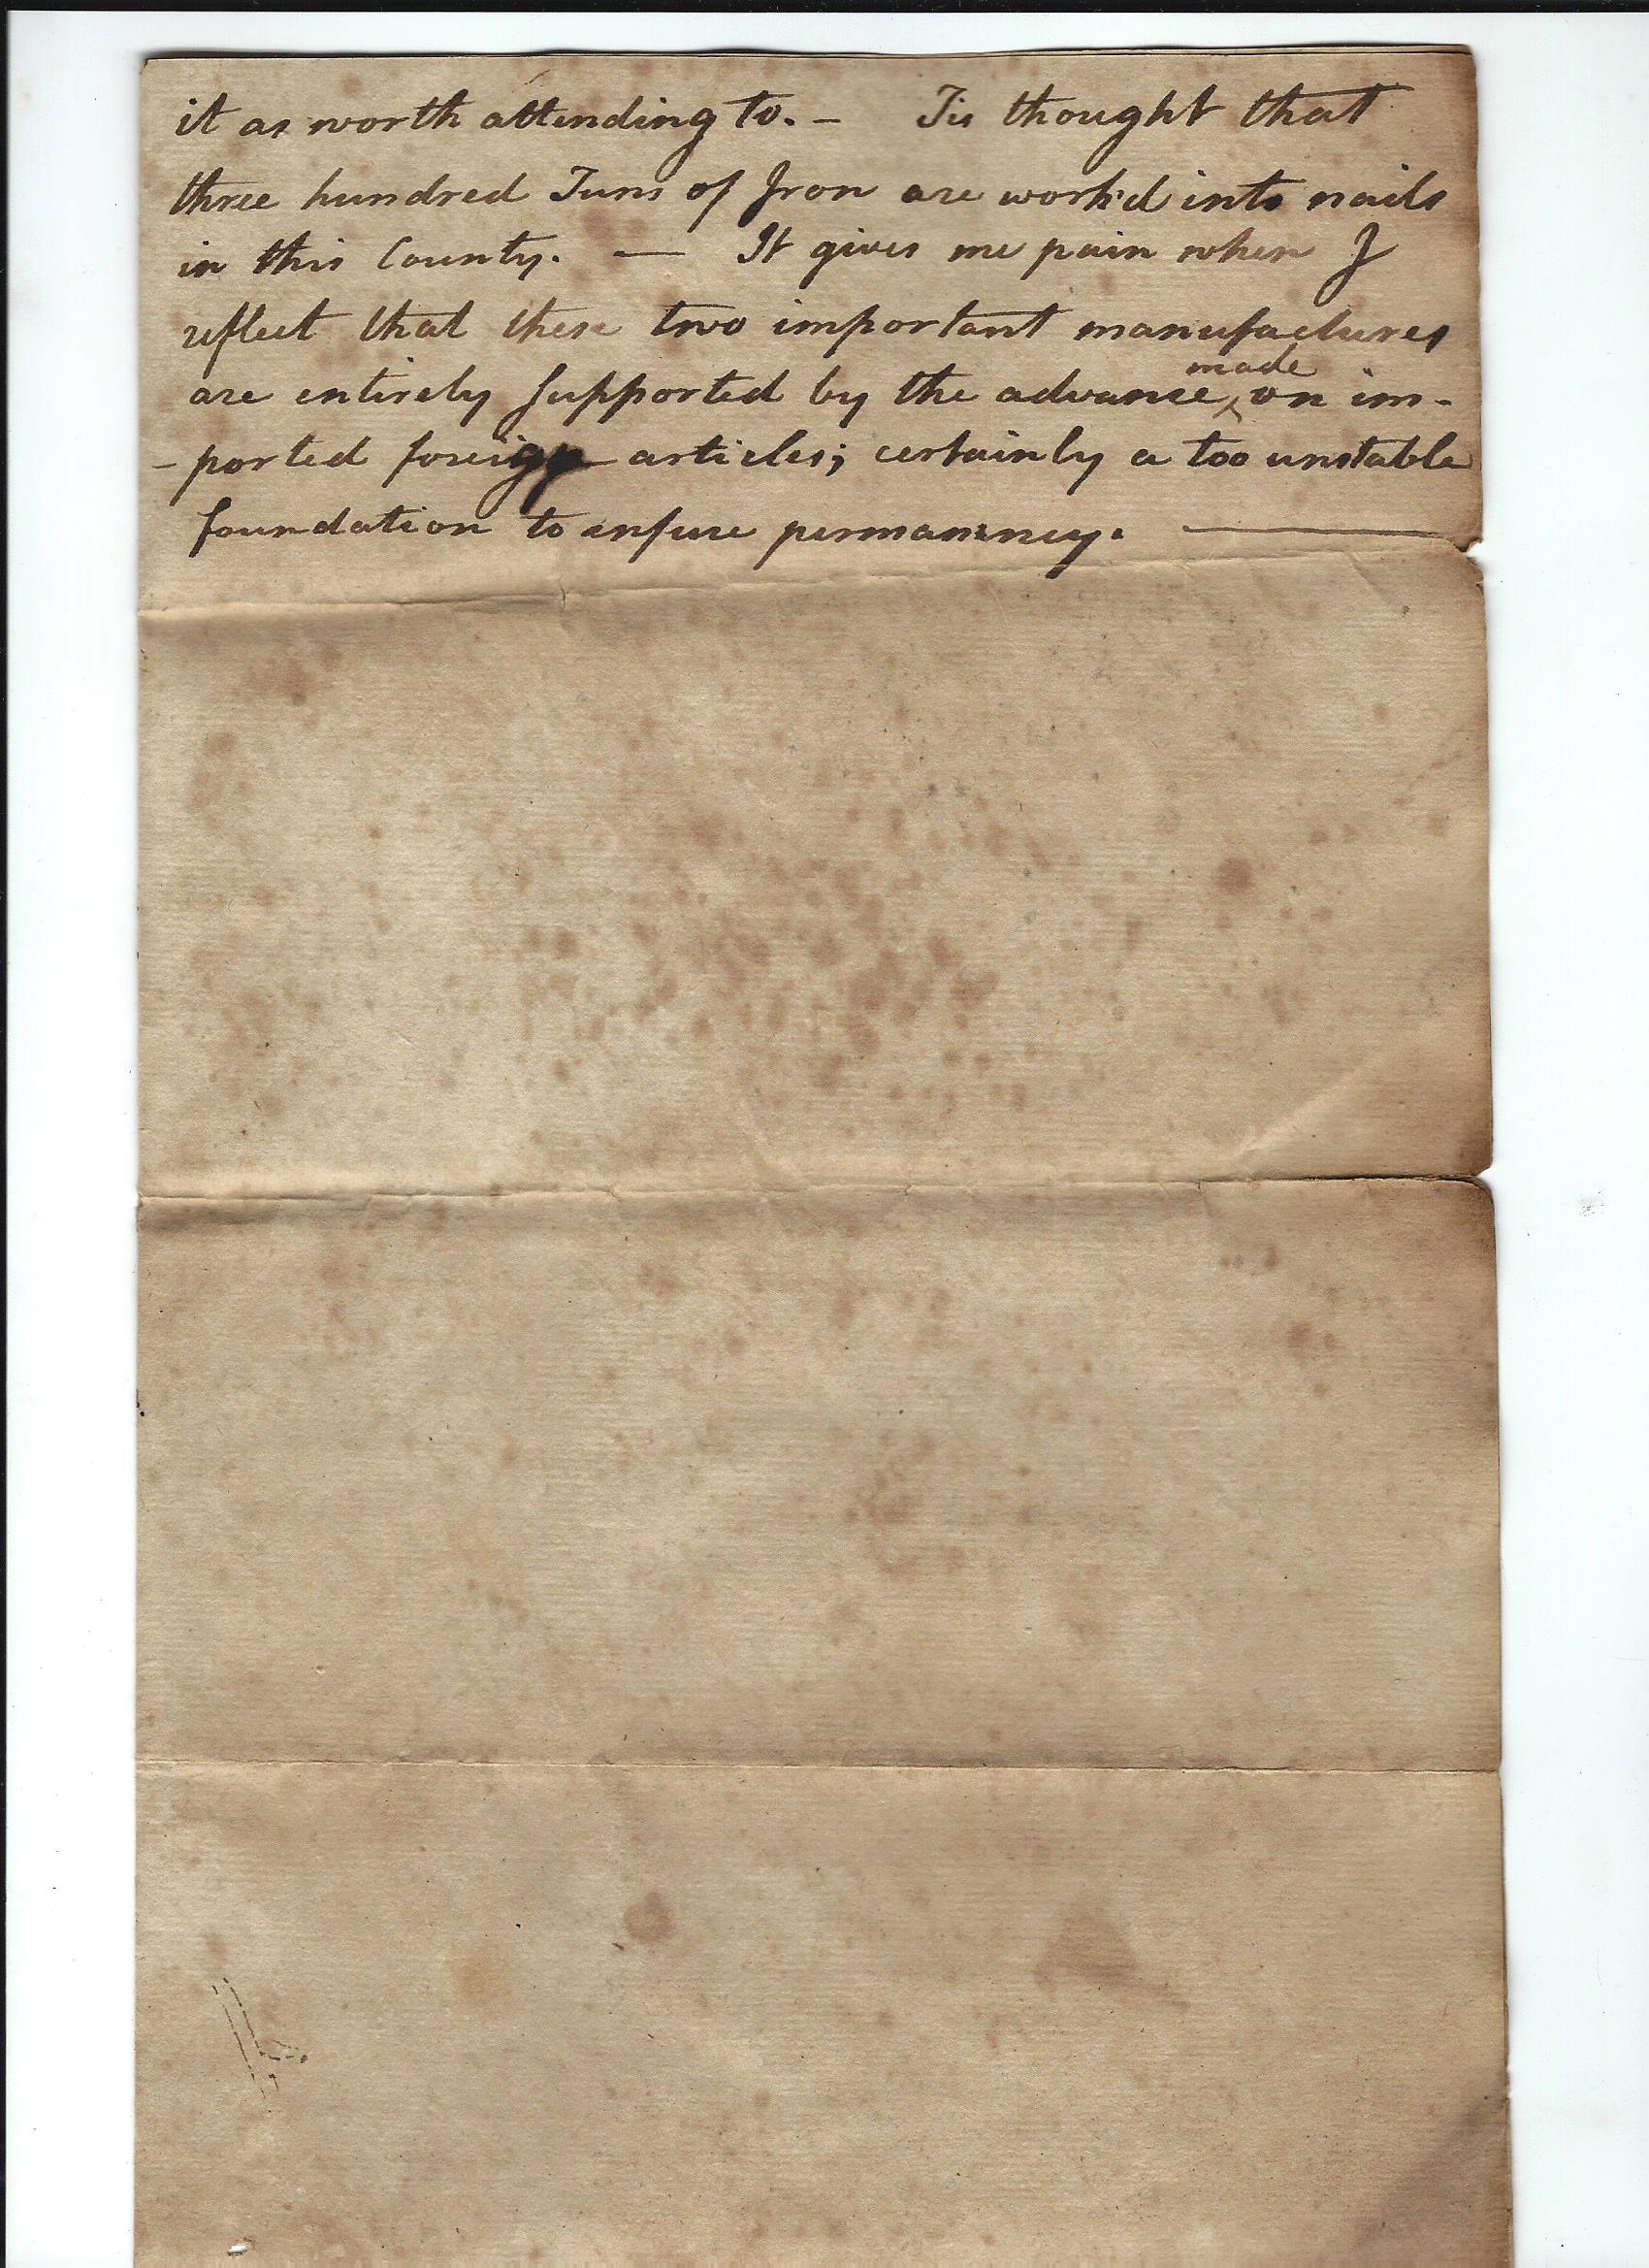 it as worth attending to. – Tis thought that
three hundred Tuns of Iron are work'd into nails
in this County. — It gives me pain when I
reflect that these two important manufactures
are entirely supported by the advance made on im-
-ported foreign articles; certainly a too unstable
foundation to ensure permanency. —